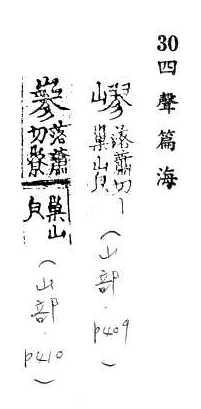 30 四聲篇海
嵺 落蕭切丨
巢山皃
(山部.p409)
落蕭
切嶚
巢山
皃
(山部.p410)